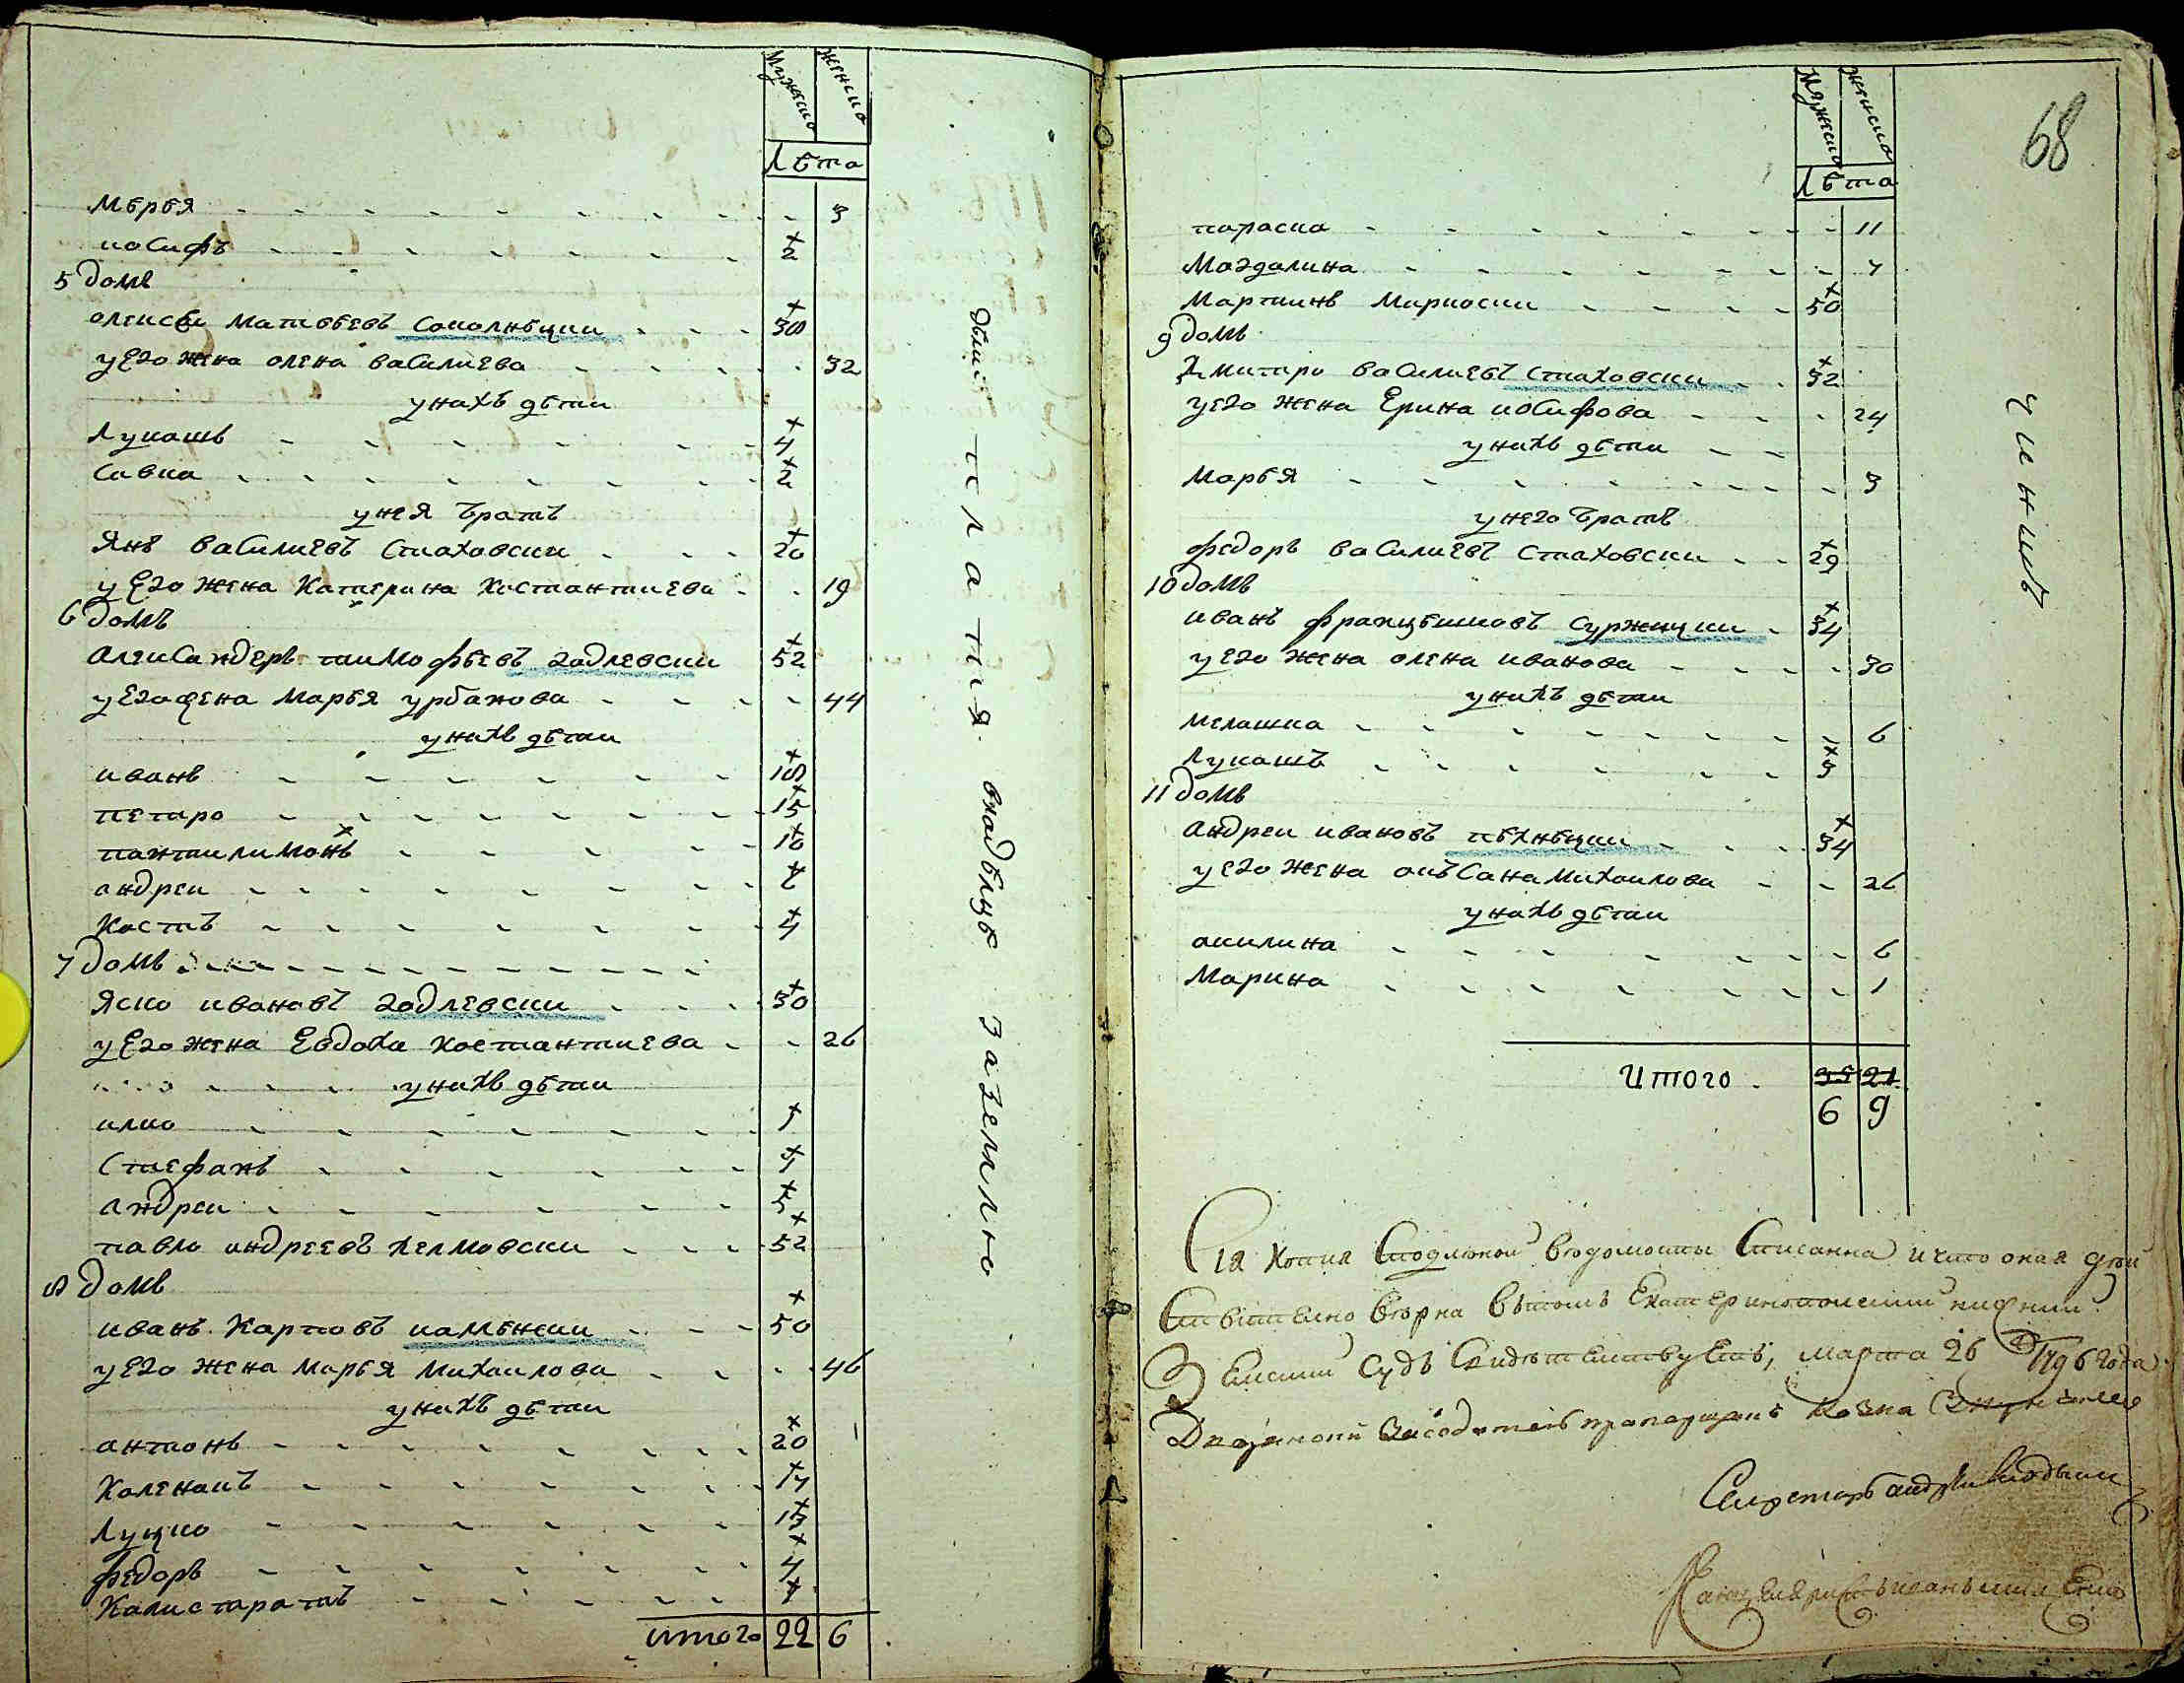 Мужеско женско
Лѣта
Мѣрѣя 3
иосифъ 2
5 домъ
олексѣи Матвѣевъ Соколнѣцки 38
у Его жена олена василиева 32
у нихъ дѣти
Лукашъ 4
Савка 2
у нея братъ
Янъ василиевъ Стаховски 20
у Его жена Катерина Костантиева 19
6 домъ
Александеръ тимофѣевъ годлевски 52
у Его жена Марѣя урбанова 44
у нихъ дѣти
иванъ 18
петро 15
пантилимонъ 10
андреи
Костъ 4
7 домъ
Яско ивановъ годлевски 30
у Его жена Евдоха костантиева 26
у нихъ дѣти
илко
Стефанъ
андреи 5
павло андреевъ хелмовски 52
8 домъ
иванъ Карповъ каменски 50
у Его жена Марѣя Михаилова 46
у нихъ дѣти
антонъ 20
Коленикъ 17
Луцко 13
федоръ
Калистратъ
итого 22 6
платитъ владѣлцѣ за землю
68
Мужеско женско
Лѣта
параска 11
Магдалина 7
Мартинъ Мариоски 50
9 домъ
Дмитро василиевъ Стаховски 32
у его жена Ерина иосифова 24
у нихъ дѣти
Марѣя 3
у него братъ
федоръ василиевъ Стаховски 29
10 домъ
иванъ францѣшковъ Суржицки 34
у его жена олена иванова 30
у нихъ дѣти
мелашка 6
Лукашъ 3
11 домъ
Андреи ивановъ пѣхнѣцки 34
у его жена оксана Михаилова 26
у нихъ дѣти
акилина 6
Марина 1
Итого 35 21
6 9
чиншъ
Сия копия Сподлѣнои вѣдомости Списанна и что оная дѣй
Ствително вѣрна вътомъ Екатеринополскии нижнии
Земскии Судъ Свидѣтелствуетъ, марта 26 1796 года
Дворянскии Заседатель прапорщикъ
Секретарь андреи
Канцеляристъ